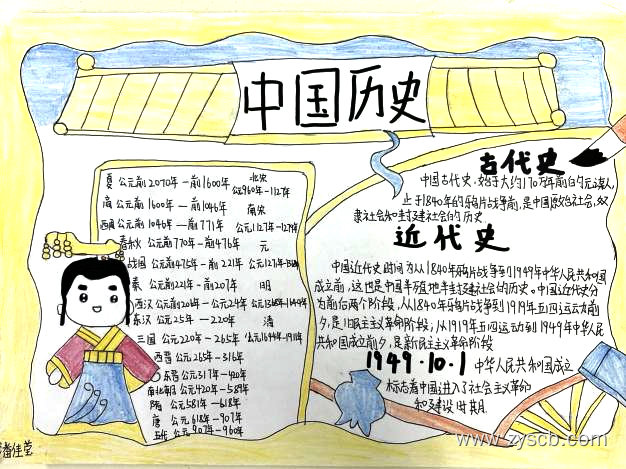 中国历史
夏 公元前2070年-前1600年
商 公元前1600年-前1046年
西周 公元前1046年-前771年
春秋 公元前770年-前476年
战国 公元前475年-前221年
秦 公元前221年-前207年
西汉 公元前206年-公元24年
东汉 公元25年-220年
三国 公元220年-265年
西晋 公元265年-316年
东晋 公元317年-420年
南北朝 公元420年-589年
隋 公元581年-618年
唐 公元618年-907年
五代 公元907年-960年
北宋
公元960年-1127年
南宋
公元1127年-1279年
元
明
清
公元1644年-1911年
古代史
中国古代史,始于大约170万年前的元谋人
止于1840年的鸦片战争前,是中国原始社会、奴
隶社会和封建社会的历史
近代史
中国近代史时间为从1840年鸦片战争到1949年中华人民共和国
成立前,这也是中国半殖地半封建社会的历史。中国近代史分
为前后两个阶段,从1840年鸦片战争到1919年五四运动前
夕,是旧民主主义革命阶段;从1919年五四运动到1949年中华人民
共和国成立前夕,是新民主主义革命阶段
1949·10·1 中华人民共和国成立
标志着中国进入了社会主义革命
和建设时期
潘佳莹
www.zyscb.com